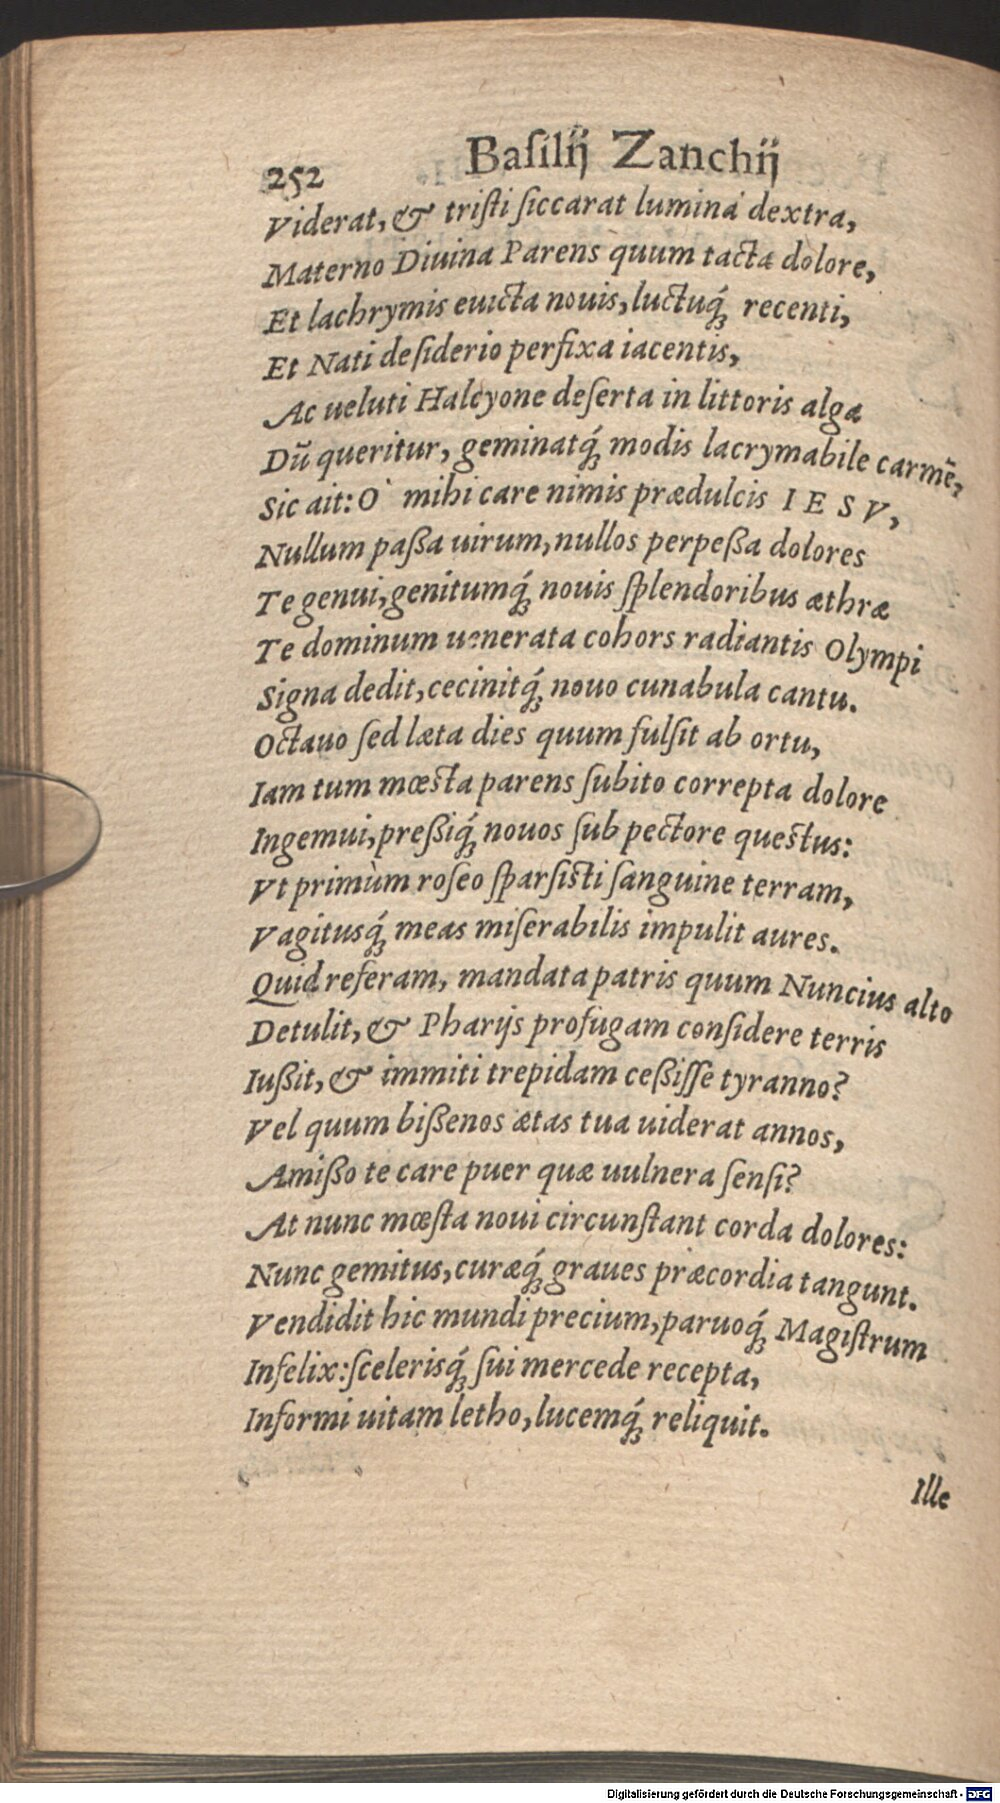 252 Baſilij Zanchij
Viderat, & triſti ſiccarat lumina dextra,
Materno Diuina Parens quum tacta dolore,
Et lachrymis euicta nouis, luctuq́; recenti,
Et Nati deſiderio perfixa iacentis,
Ac ueluti Halcyone deſerta in littoris alga
Dũ queritur, geminatq́; modis lacrymabile carmẽ,
Sic ait: O` mihi care nimis prædulcis IESV,
Nullum paßa uirum, nullos perpeßa dolores
Te genui, genitumq́; nouis ſplendoribus æthræ
Te dominum uenerata cohors radiantis Olympi
Signa dedit, cecinitq́; nouo cunabula cantu.
Octauo ſed læta dies quum fulſit ab ortu,
Iam tum mœſta parens ſubito correpta dolore
Ingemui, preßiq́; nouos ſub pectore queſtus:
Vt primùm roſeo ſparſiſti ſanguine terram,
Vagitusq́; meas miſerabilis impulit aures.
Quid referam, mandata patris quum Nuncius alto
Detulit, & Pharijs profugam conſidere terris
Iußit, & immiti trepidam ceßiſſe tyranno?
Vel quum bißenos ætas tua uiderat annos,
Amißo te care puer quæ uulnera ſenſi?
At nunc mœſta noui circunſtant corda dolores:
Nunc gemitus, curæq́; graues præcordia tangunt.
Vendidit hic mundi precium, paruoq́; Magiſtrum
Infelix: ſcelerisq́; ſui mercede recepta,
Informi uitam letho, lucemq́; reliquit.
Ille
Digitalisierung gefördert durch die Deutsche Forschungsgemeinschaft - DFG